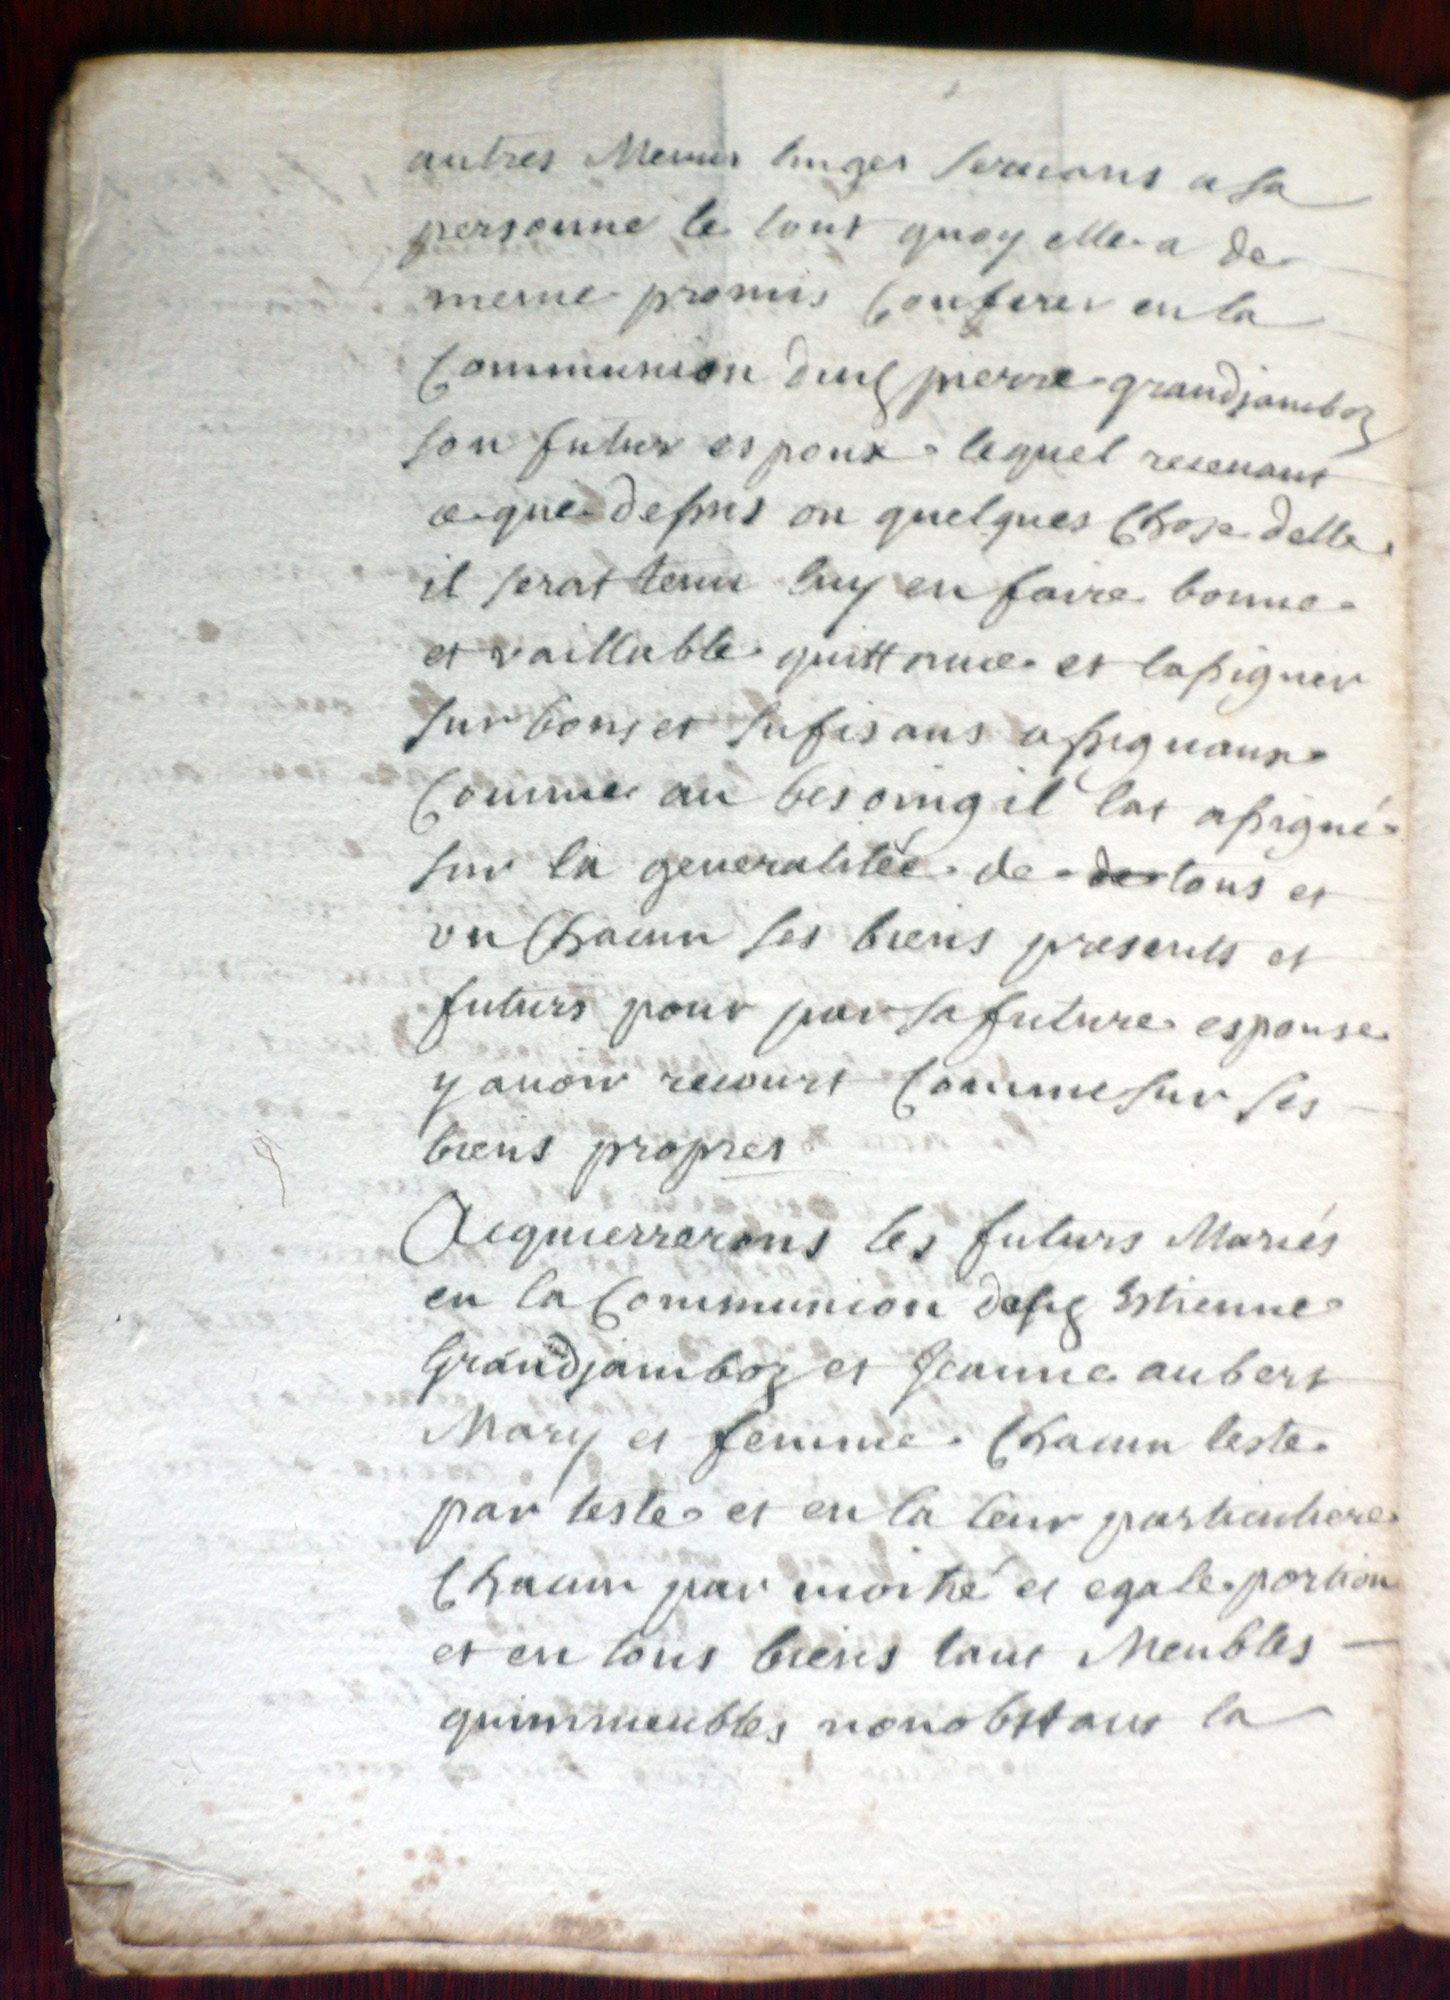 autres Menus linges servans a sa
personne le tout quoy elle a de
mesme promis Conferer en la
Communion dud pierre grandjamboz
son futur espoux lequel recevant
ce que dessus ou quelques Chose delle
il serat tenu luy en faire bonne
et vaillable quittance et lassigner
sur bons et sufisans assignaux
Comme au besoing il lat assigné
sur la generalitée de de tous et
vn Chacun ses biens presents et
futurs pour par sa future espouse
y auoir recourt Comme sur ses
biens propres
Acquierreronts les futurs Mariés
en la Communion desd Estienne
Grandjamboz et Jeanne aubert
Mary et femme Chacun teste
par teste et en la leur particuliere
Chacun par moitié et egale portion
et en tous biens tant Meubles
quimmeubles nonobstant la